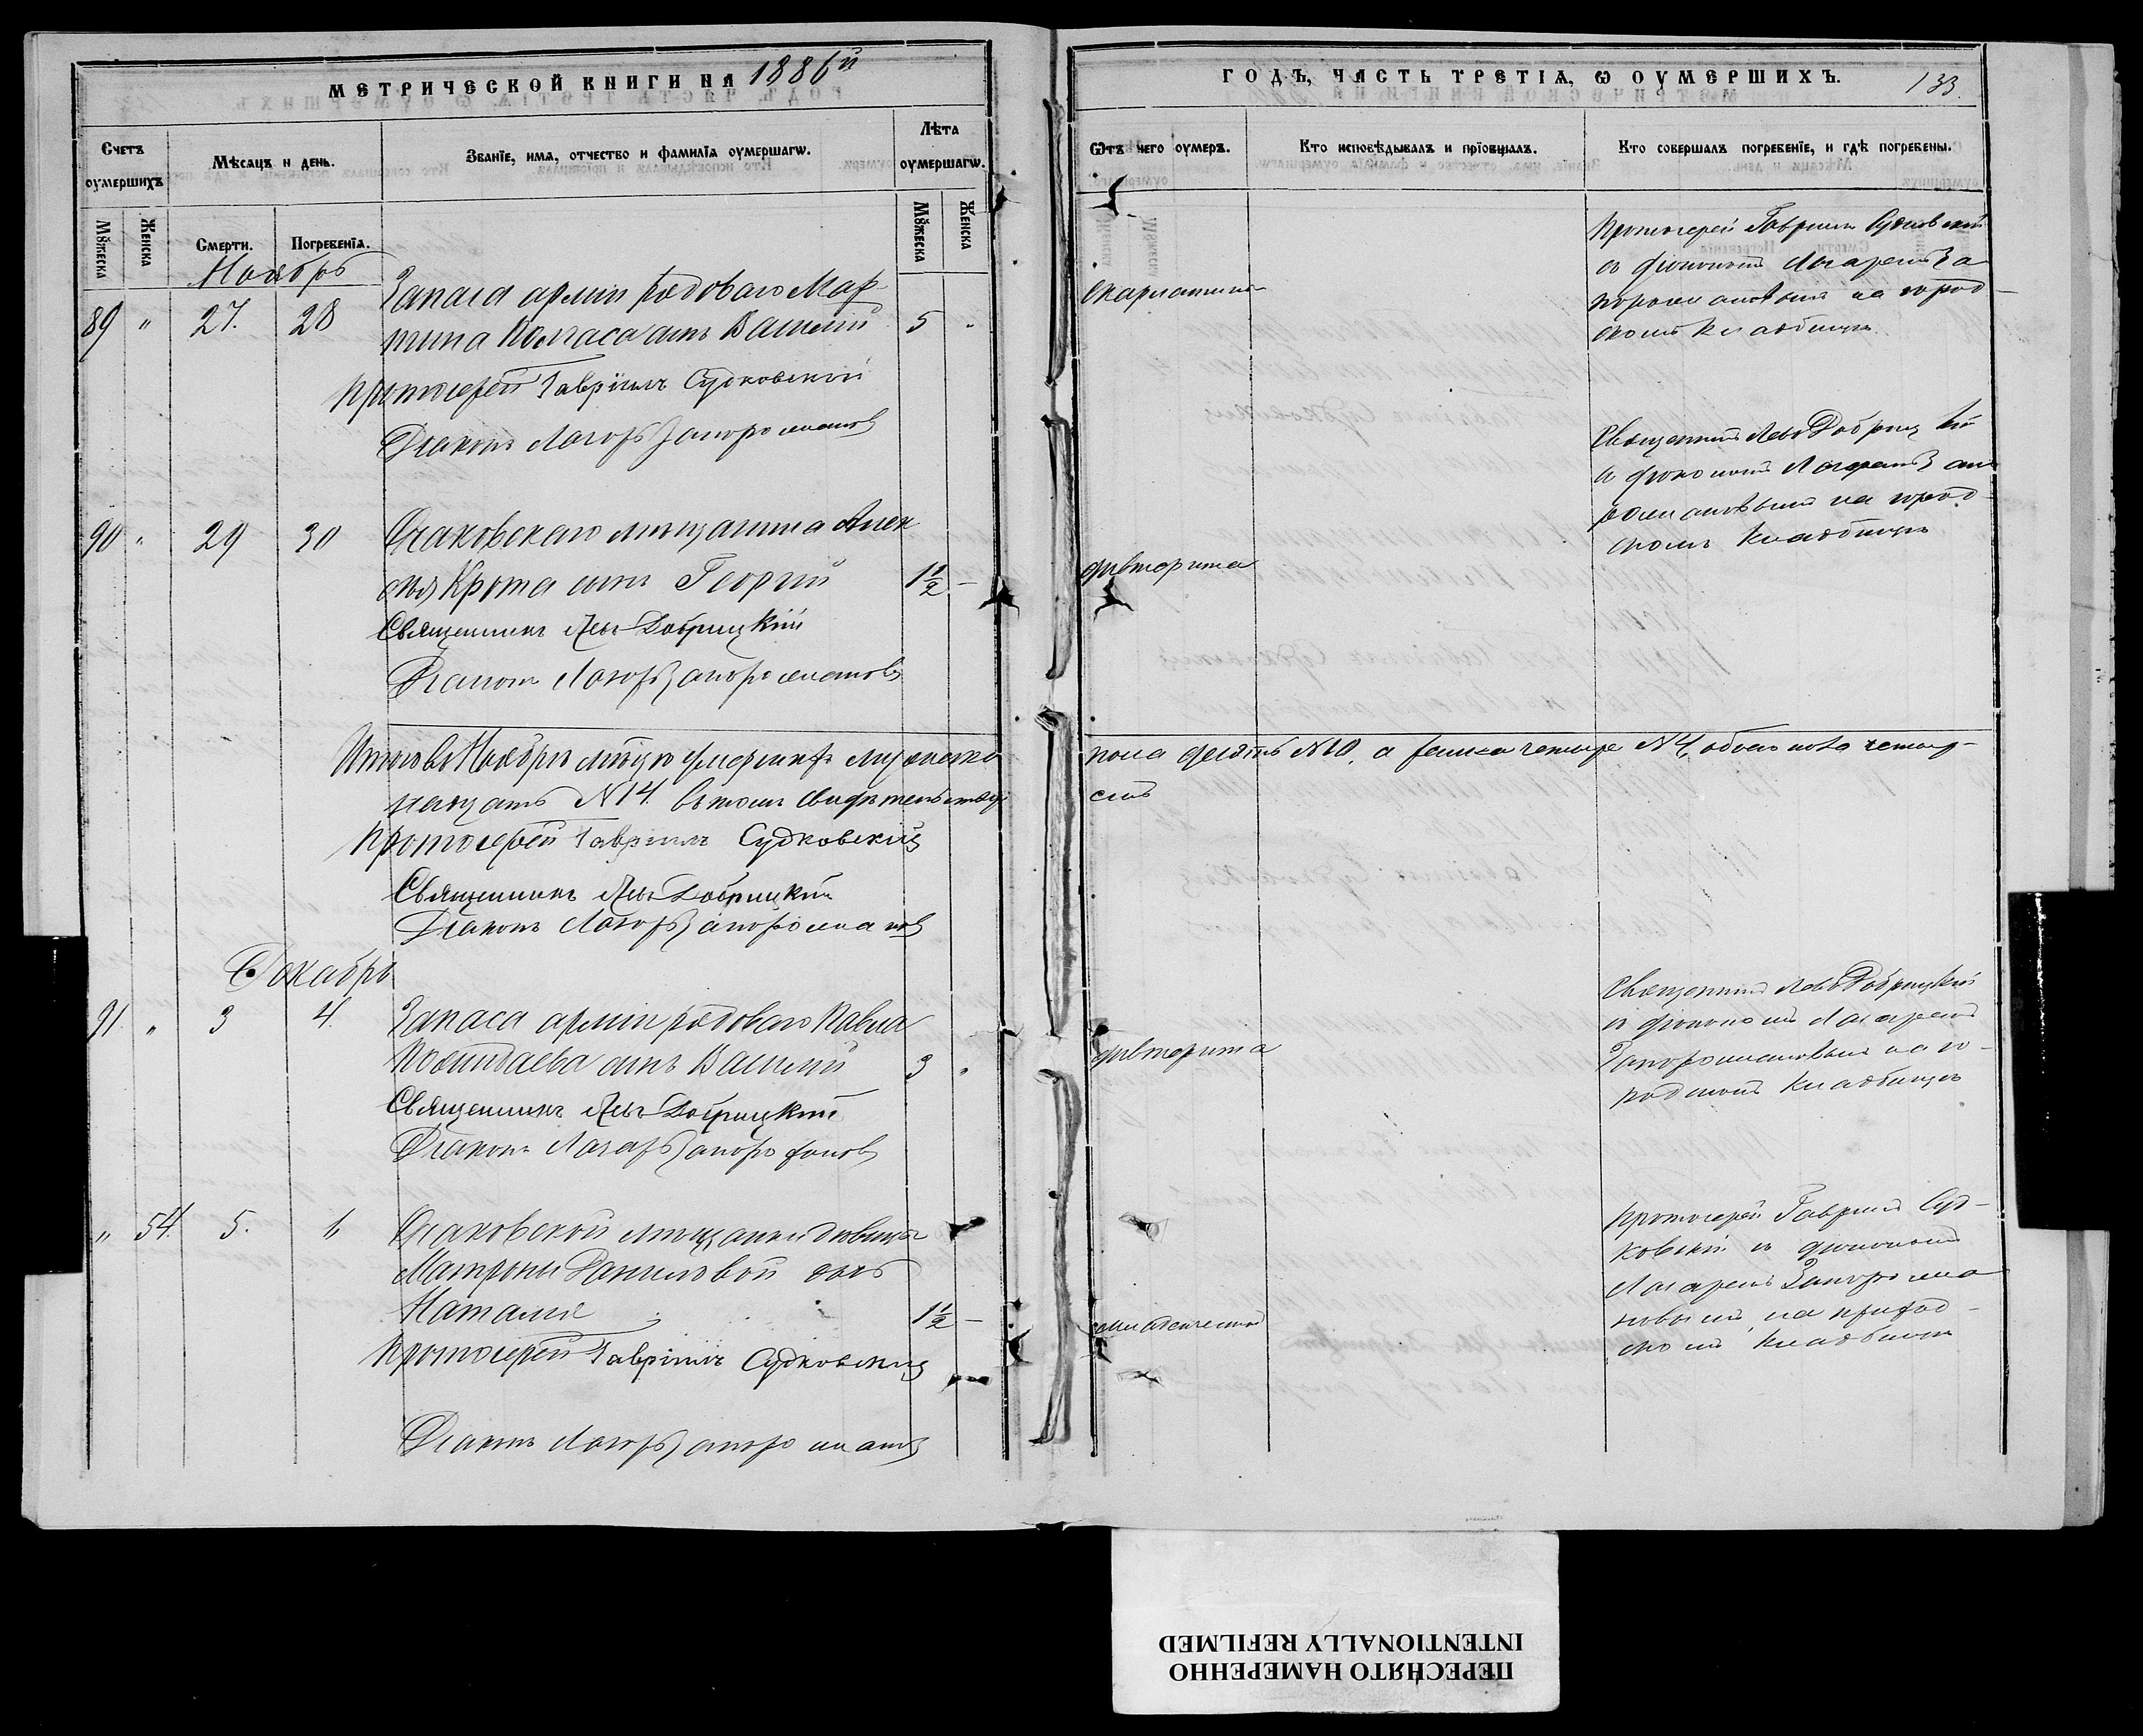 МЕТРИЧЕСКОЙ КНИГИ НА 1886й
ГОДЪ, ЧАСТЬ ТРЕТІѦ, Ѡ ОУМЕРШИХЪ.
133.
Счетъ оумершихъ
Мѣсяцъ и день.
Званіе, имѧ, отчество и фамиліѧ оумершагѡ.
Лѣта оумершагѡ.
Ѿтъ чего оумеръ.
Кто исповѣдывалъ и пріобщалъ.
Кто совершалъ погребеніе, и гдѣ погребены.
Мꙋжеска
Женска
Смерти.
Погребеніѧ.
Мꙋжеска
Женска
Ноябрь
89 " 27. 28
Запаса арміи рядоваго Мар-
тина сынъ Василій 5 "
Протоіерей Гавріилъ Судковскій
Діаконъ Лазарь Запорожановъ
скарлатины
Протоіерей Гавріилъ Судковскій
съ діакономъ Лазаремъ За
порожановымъ на город-
скомъ кладбищѣ.
90 " 29 30
Очаковскаго мѣщанина Алек
сѣя Крота сынъ Георгій 1½ –
Священникъ Левъ Добрицкій
Діаконъ Лазарь Запорожановъ
дифторита
Священникъ Левъ Добрицкій
съ діакономъ Лазаремъ Запо
рожановымъ на город-
скомъ кладбищѣ
Итого въ Ноябрѣ мѣсяцѣ умершихъ мужеска
пола десять №10, а женска четыре №4, обоего пола четыр-
надцать №14. въ томъ свидѣтельствуемъ
Протоіерей Гавріилъ Судковскій
Священникъ Левъ Добрицкій
Діаконъ Лазарь Запорожановъ
Декабрь
91. " 3 4.
Запаса арміи рядоваго Павла
сынъ Василій 3 "
Священникъ Левъ Добрицкій
Діаконъ Лазарь Запорожановъ
дифторита
Священникъ Левъ Добрицкій
съ діакономъ Лазаремъ
Запорожановымъ на го-
родскомъ кладбищѣ
" 54. 5. 6
Очаковской мѣщанки дѣвицы
Матроны Даниловой дочь
Наталія 1½ –
Протоіерей Гавріилъ Судковскій
Діаконъ Лазарь Запорожановъ
младенческой
Протоіерей Гавріилъ Суд-
ковскій съ діакономъ
Лазаремъ Запорожа
новымъ на приход-
скомъ кладбищѣ
ПЕРЕСНЯТО НАМЕРЕННО
INTENTIONALLY REFILMED